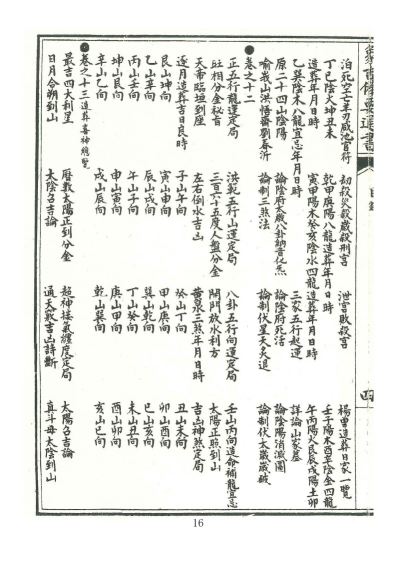 象吉備要通書 目錄 四
泊死空亡羊刃咸池官符 劫殺災殺歲殺刑宮 泄宮敗殺宮 楊曹造葬日家一覽
丁巳陰火坤丑未 乾甲庚陽八龍造葬年月日時 壬子陽木酉至陰金四龍
造葬年月日時 寅甲陽木癸亥陰水四龍造葬年月日時 午丙陽火艮辰戌陽土卯
乙巽陰木八龍宜忌年月日時 三家五行起運 詳論山家墓
原二十四山陰陽 論陰府太歲八卦納音化炁 論陰府死活 論陰陽消滅圖
喻峩山洪悟齋劉春沂 論制三煞法 論制伏星天炙退 論制伏太歲歲破
卷之十二
正五行龍運定局 洪範五行山運定局 八卦五行向運定局 壬山丙向造命補龍宜忌
旺相分金秘旨 三百六十五度人盤分金 開門放水利方 太陽正照到山
天帝臨垣到座 左右倒水吉凶 黃泉三煞年月日時 吉凶神煞定局
逐月造葬吉日良時 子山午向 癸山丁向 丑山未向
艮山坤向 寅山申向 甲山庚向 卯山酉向
乙山辛向 辰山戌向 巽山乾向 巳山亥向
丙山壬向 午山子向 丁山癸向 未山丑向
坤山艮向 申山寅向 庚山甲向 酉山卯向
辛山乙向 戌山辰向 乾山巽向 亥山巳向
卷之十三造葬喜神總覽
最吉四大利星 曆數太陽正到分金 超神接氣纏度定局 太陽名吉論
日月合朔到山 太陰名吉論 通天竅吉凶詩斷 真斗母太陰到山
16